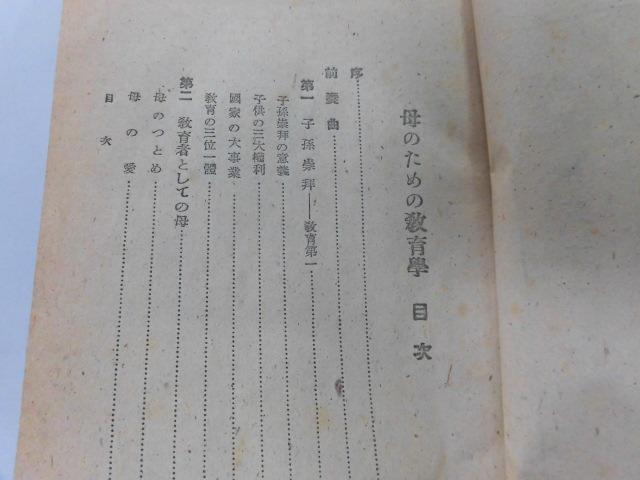 母のための敎育學 目次
序
前奏曲
第一 子孫崇拜——敎育第一
子孫崇拜の意義
子供の三大權利
國家の大事業
敎育の三位一體
第二 敎育者としての母
母のつとめ
母の愛
目次